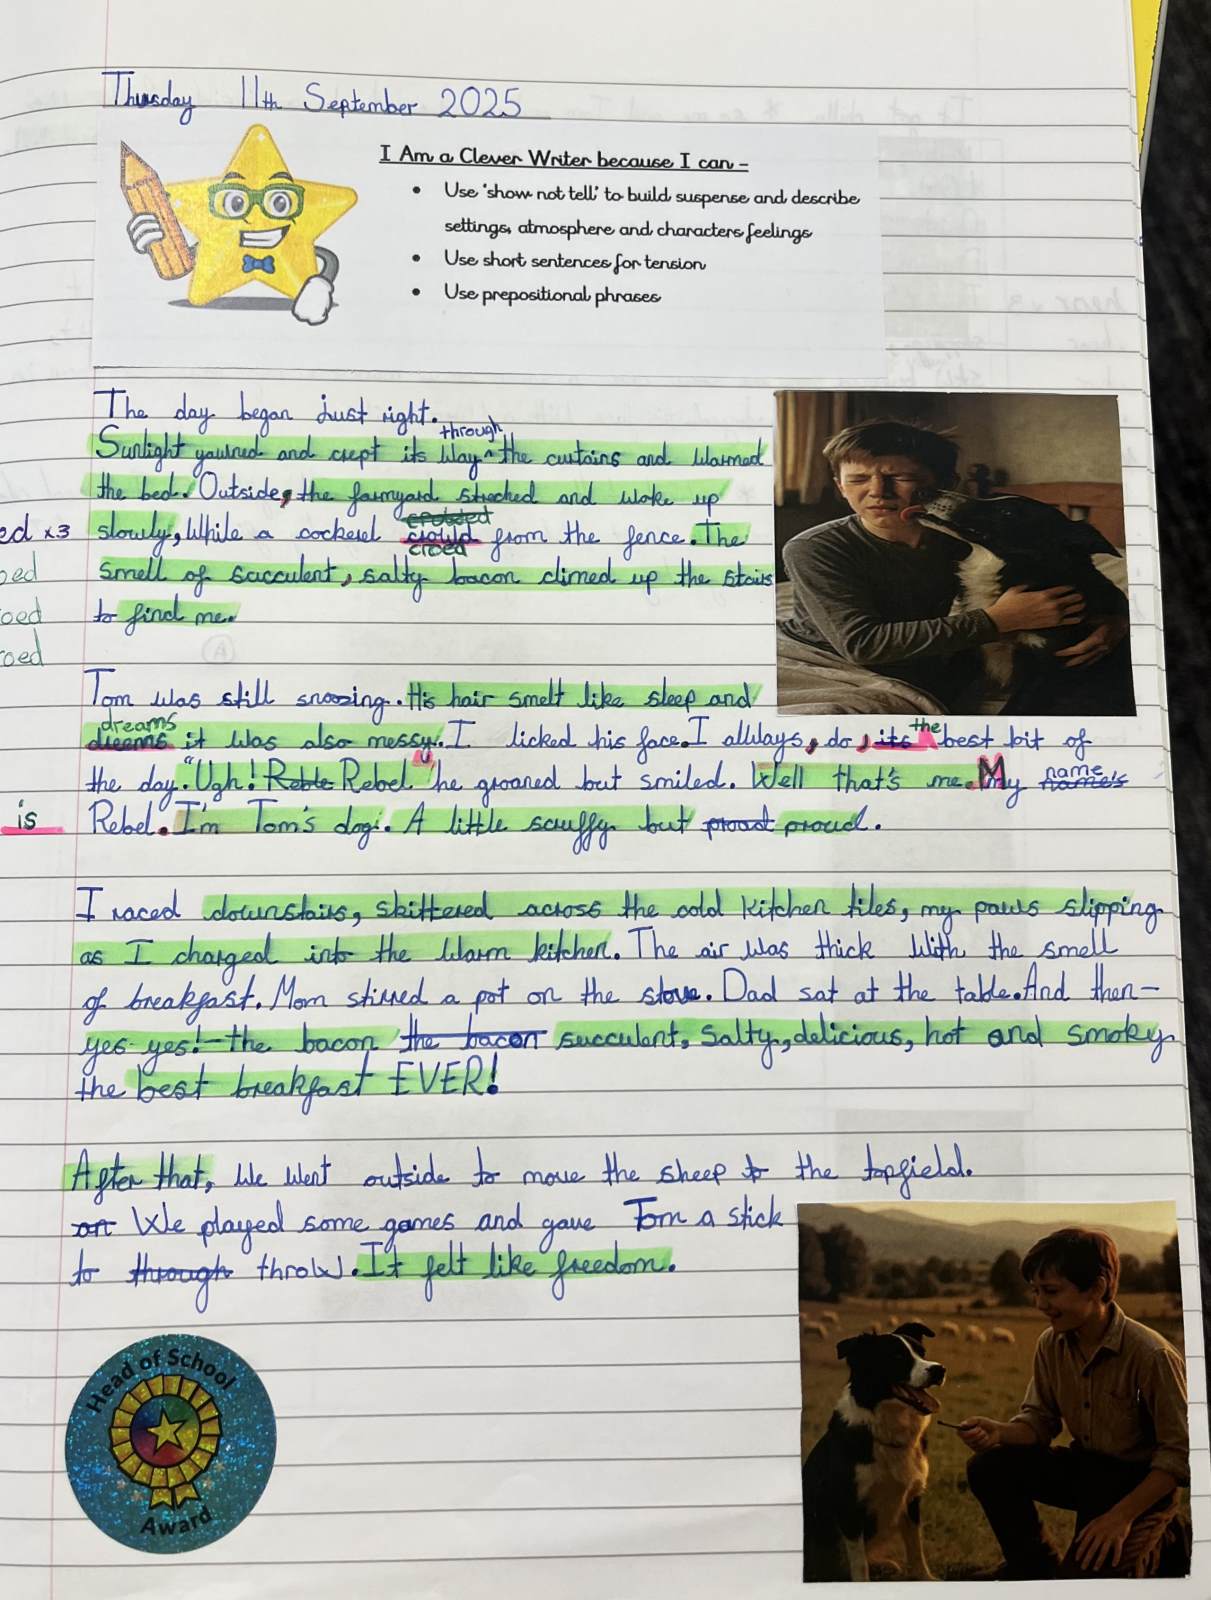 Thursday 11th September 2025
I Am a Clever Writer because I can -
• Use 'show not tell' to build suspense and describe
settings, atmosphere and characters feelings
• Use short sentences for tension
• Use prepositional phrases
The day began just right.
through
Sunlight yawned and crept its way ^ the curtains and warmed
the bed. Outside, the farmyard streched and woke up
crowed
ed x3 slowly, While a cockerel crowd from the fence. The
croed
smell of sacculent, salty bacon climed up the stairs
oed to find me.
oed
Tom was still snoozing. His hair smelt like sleep and
dreams the
dreems it was also messy. I licked his face. I allways, do, its best bit of
name
the day. "Ugh! Roble Rebel" he groaned but smiled. Well that's me. My name's
is Rebel. I'm Tom's dog. A little scruffy but proud.
I raced downstairs, skittered across the cold kitchen tiles, my paws slipping
as I charged into the warm kitchen. The air was thick with the smell
of breakfast. Mom stirred a pot on the stove. Dad sat at the table. And then-
yes yes! - the bacon the bacon succulent, salty, delicious, hot and smoky
the best breakfast EVER!
After that, we went outside to move the sheep to the topfield.
We played some games and gave Tom a stick
to through throw. It felt like freedom.
Head of School
Award